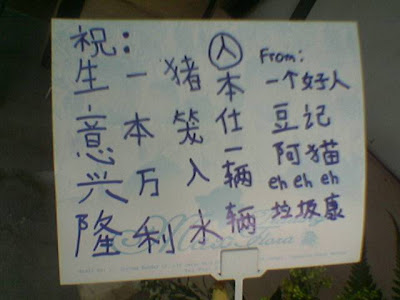 祝:
生意兴隆
一本万利
猪笼入水
入本仕一辆辆
From:
一个好人
豆记
阿猫
eh eh eh
垃圾康
Flora